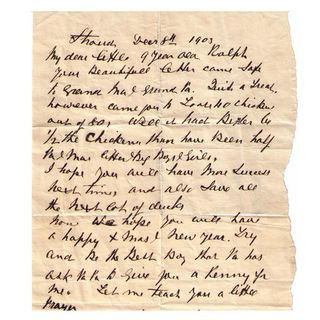 Strand Decr 8th 1903
My dear little 9 year old Ralph
your Beautifull letter came safe
to Grand Ma & Grand Pa.
however came you to Loose 40 chicken
out of 60s. Well it had Better be
1/2 the Chickens than have Been half
the
I hope you will have More Success
Next time and also save all
the Next Lot of ducks
Now We hope you will have
a happy X Mas & New year. Try
and Be the Best Boy that Pa has
ask Pa to Give you a Penny for
Me. Let me teach you a little
Prayer